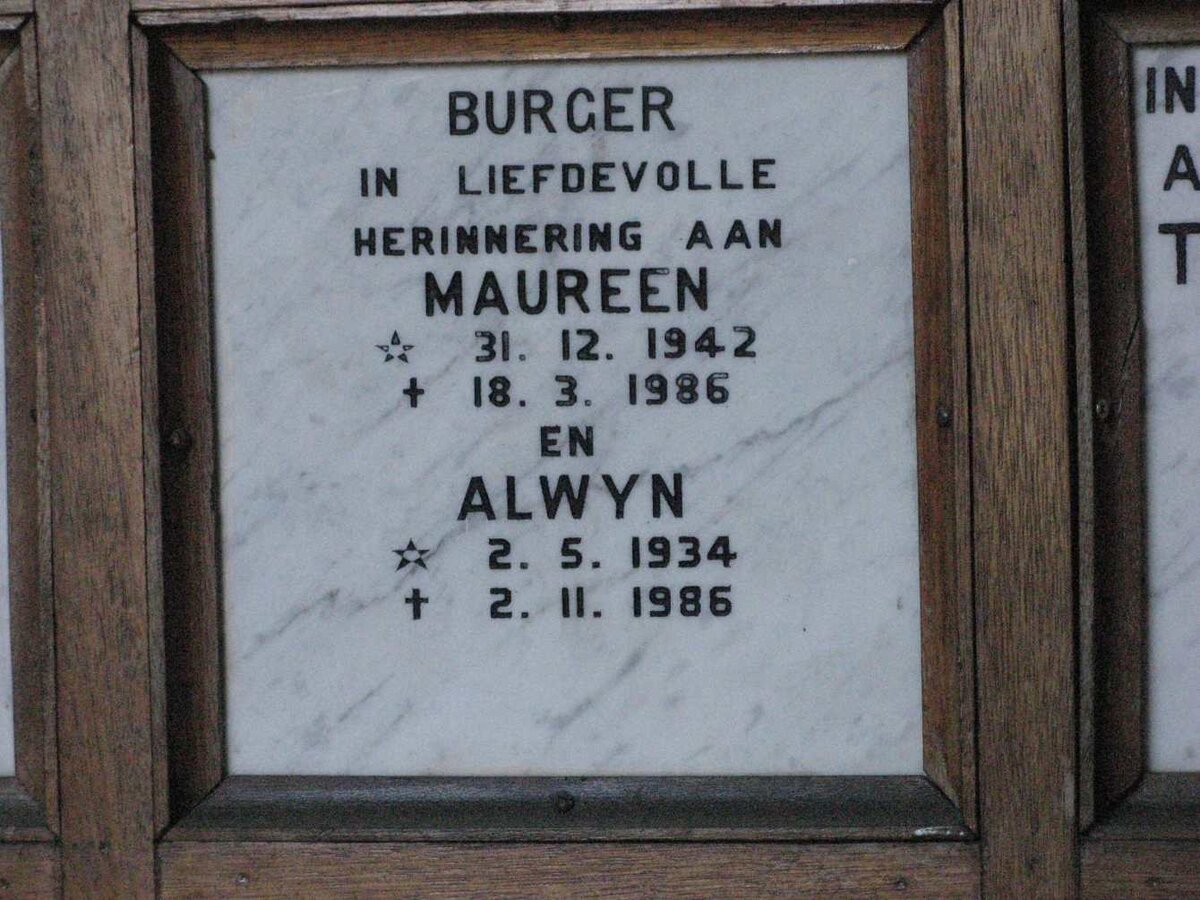 BURGER
IN LIEFDEVOLLE
HERINNERING AAN
MAUREEN
☆ 31. 12. 1942
✝ 18. 3. 1986
EN
ALWYN
☆ 2. 5. 1934
✝ 2. 11. 1986
IN